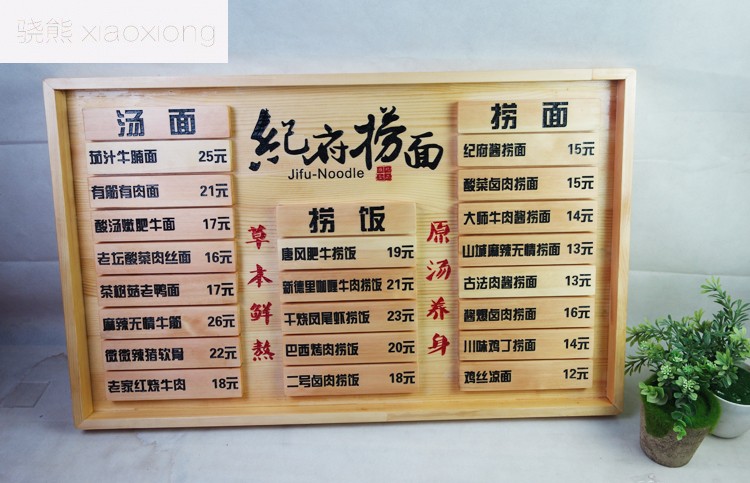 骁熊 xiaoxiong
汤面
茄汁牛腩面 25元
有筋有肉面 21元
酸汤嫩肥牛面 17元
老坛酸菜肉丝面 16元
茶树菇老鸭面 17元
麻辣无情牛筋 26元
微微辣猪软骨 22元
老家红烧牛肉 18元
紀府捞面
Jifu-Noodle
草本鲜熬
捞饭
唐风肥牛捞饭 19元
新德里咖喱牛肉捞饭 21元
干烧凤尾虾捞饭 23元
巴西烤肉捞饭 20元
二号卤肉捞饭 18元
原汤养身
捞面
纪府酱捞面 15元
酸菜卤肉捞面 15元
大师牛肉酱捞面 14元
山城麻辣无情捞面 13元
古法肉酱捞面 13元
酱爆卤肉捞面 16元
川味鸡丁捞面 14元
鸡丝凉面 12元